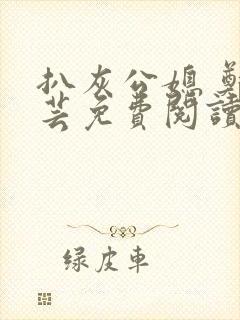 扒灰公媳 鄭
芸免費閱讀
绿皮車